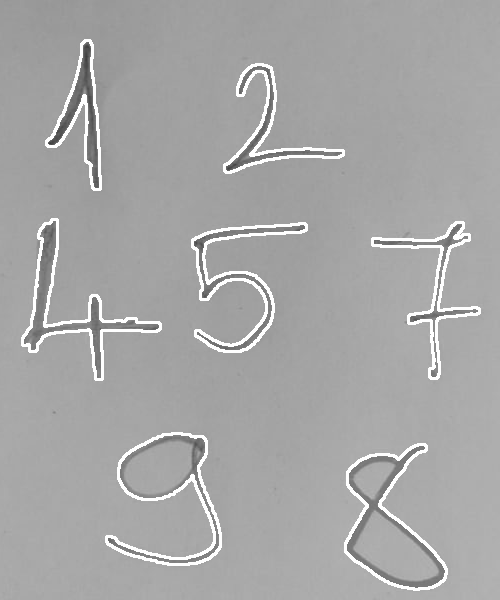 1 2
4 5 7
9 8